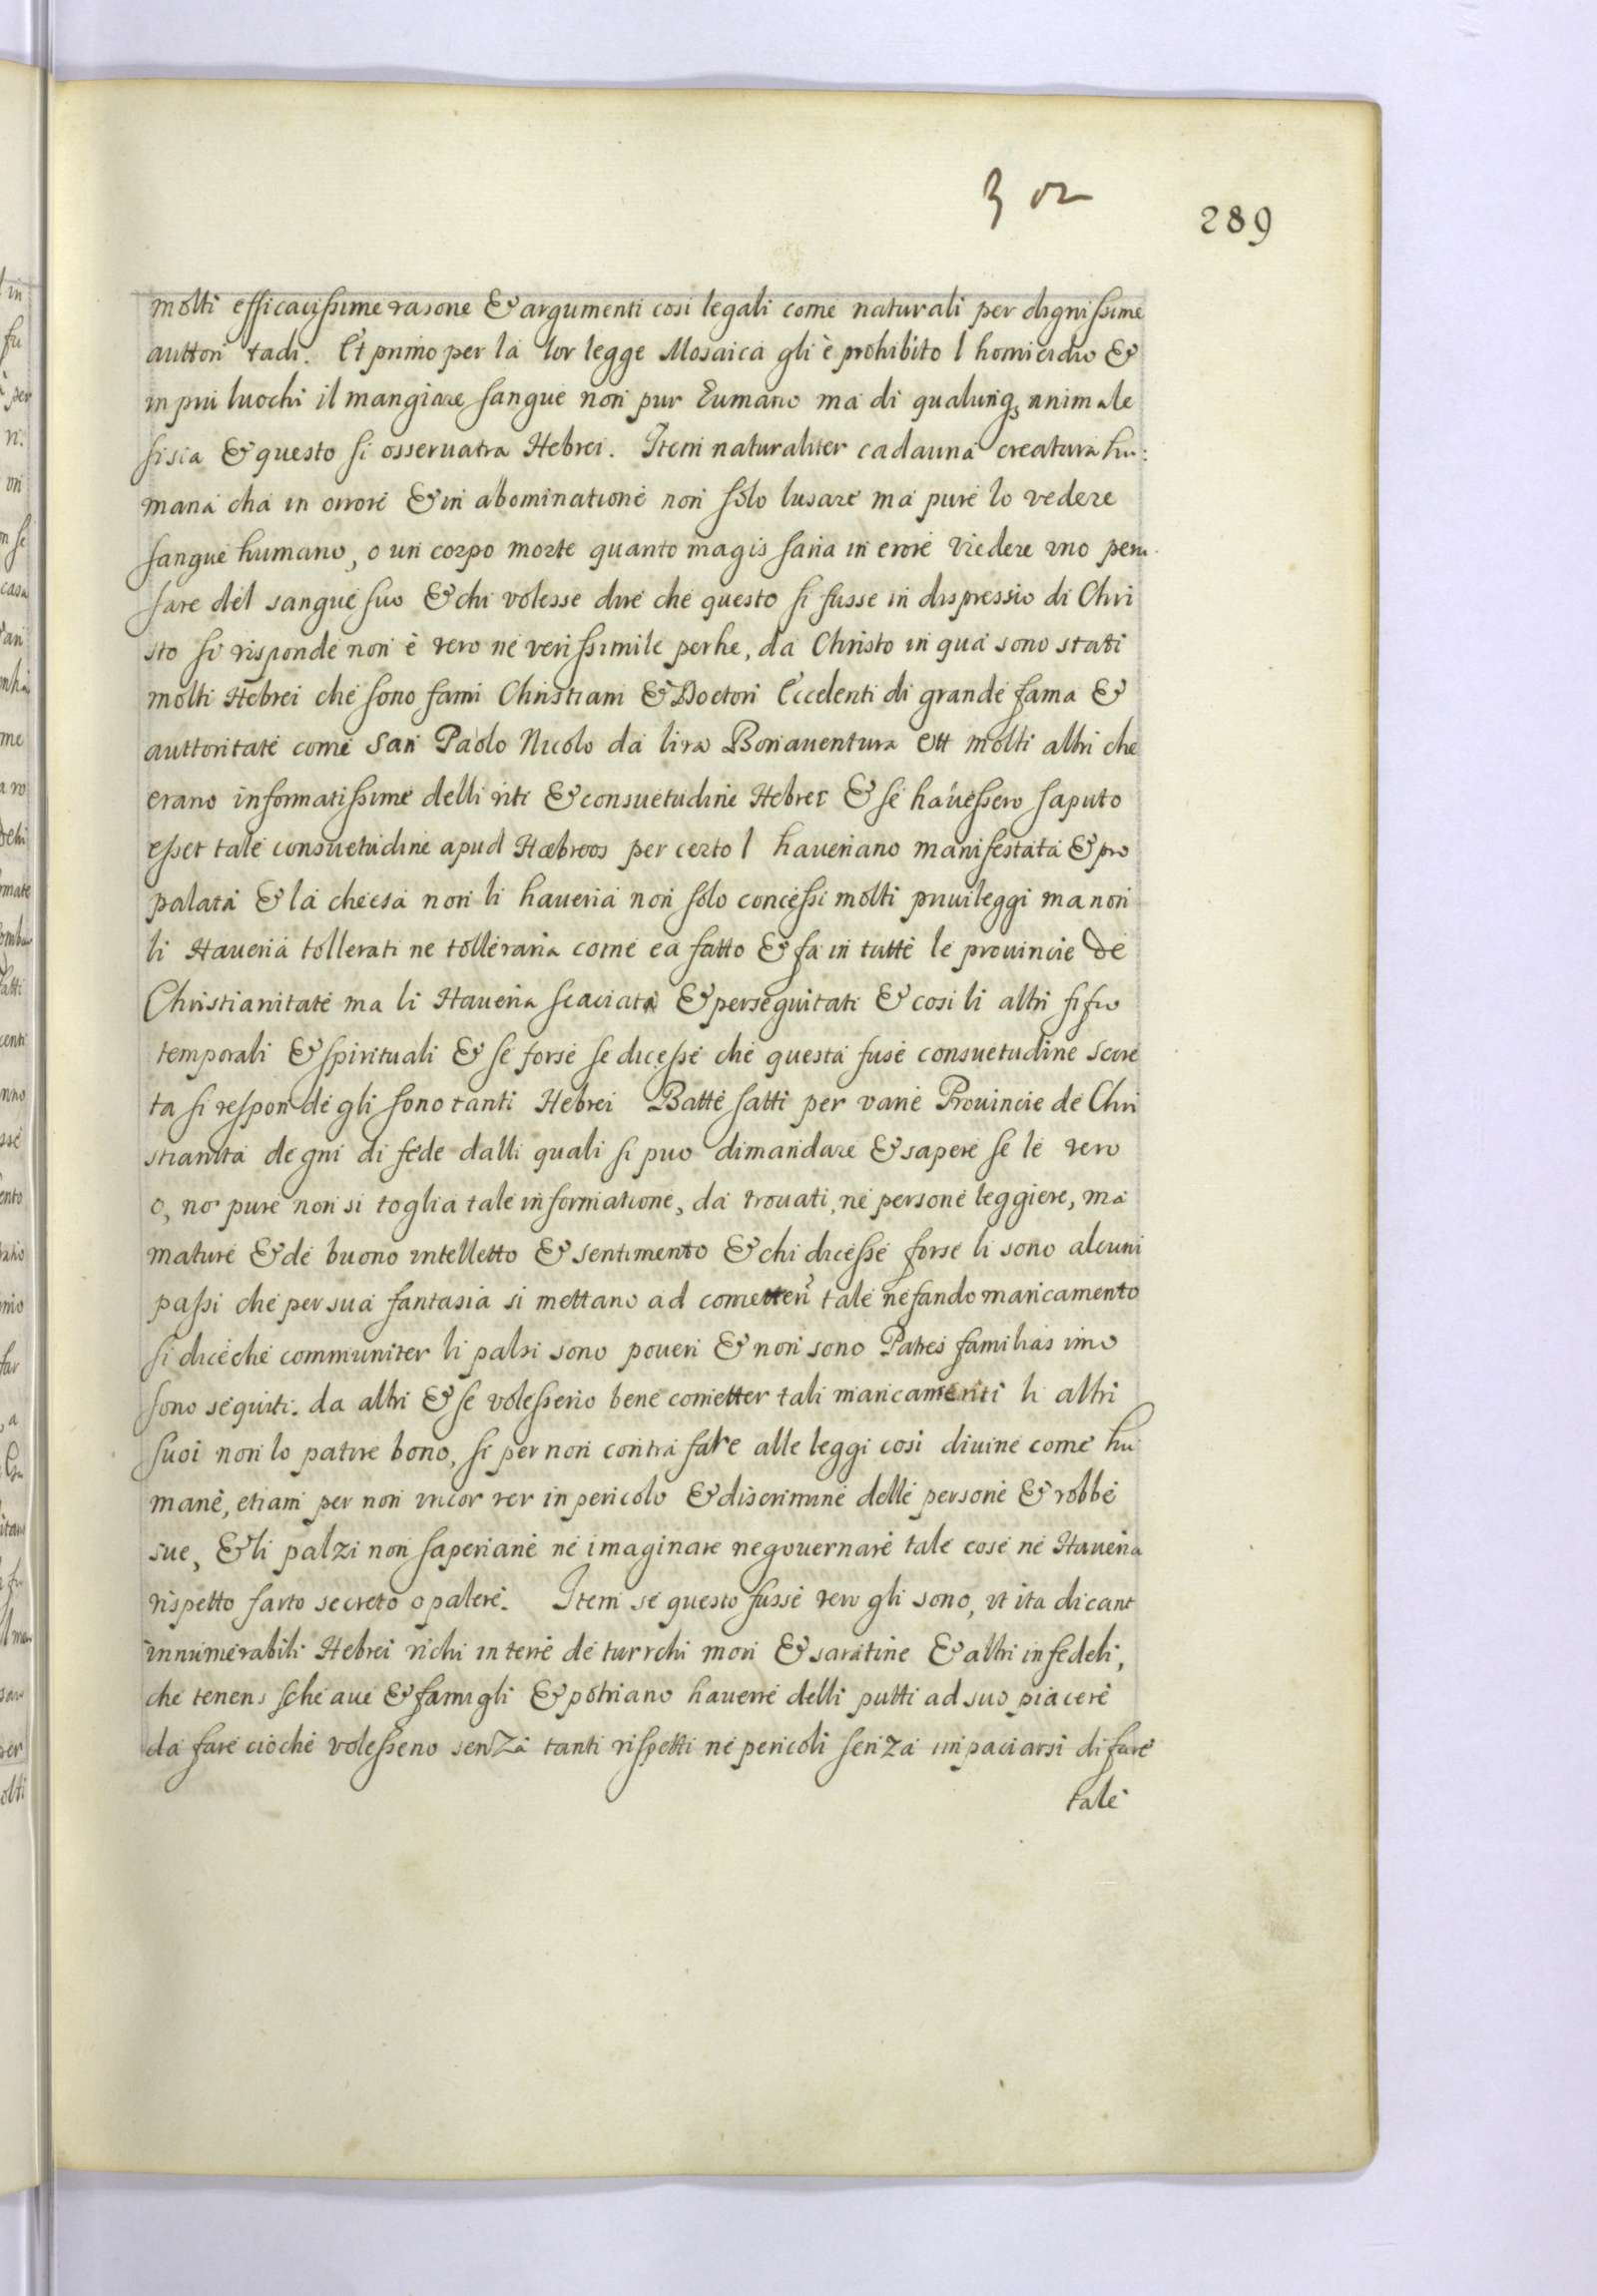 302
289
molti efficacissime rasone & argumenti cosi legali come naturali per dignissime
auttori tadi. Et primo per la lor legge Mosaica gli è prohibito l homicidio &
in piu luochi il mangiare sangue non pur Eumano ma di qualunq, animale
sisia & questo si osseruatra Hebrei. Item naturaliter cadauna creatura hu:
mana cha in orrore & in abominatione non solo lusare ma pure lo vedere
sangue humano, o un corpo morte quanto magis saria in erore viedere uno pem
sare del sangue suo & chi volesse dire che questo si fusse in dispressio di Chri
sto si risponde non è vero ne verissimile perhe, da Christo in qua sono stati
molti Hebrei che sono fami Christiani & Doctori Eccelenti di grande fama &
auttoritate come San Paolo Nicolo da lira Bonauentura ett molti altri che
erano informatissime delli riti & consuetudine Hebrei & se hauessero saputo
esset tale consuetudine apud Hæbreos per certo l haueriano manifestata & pro
palata & la cheesa non li haueria non solo concessi molti priuileggi ma non
li Haueria tollerati ne tolleraria come ea fatto & fa in tutte le prouincie de
Christianitate ma li Haueria scaciata & perseguitati & cosi li altri sifu
temporali & spirituali & se forse se dicesse che questa fuse consuetudine score
ta si responde gli sono tanti Hebrei Batte satti per varie Prouincie de Chri
stianita degni di fede dalli quali si puo dimandare & sapere se le vero
o, no pure non si toglia tale informatione, da trouati, ne persone leggiere, ma
mature & de buono intelletto & sentimento & chi dicesse forse li sono alcuni
passi che per sua fantasia si mettano ad cometteri tale nefando mancamento
si dice che communiter li palsi sono poueri & non sono Patres familias imo
sono seguiti. da altri & se volesserio bene cometter tali mancamenti li altri
suoi non lo patire bono, si per non contra fare alle leggi cosi diuine come hu
mane, etiam per non incor rer in pericolo & discrimine delle persone & robbe
sue, & li palzi non saperiane ne imaginare negouernare tale cose ne Haueria
rispetto farto secreto o palere. Item se questo fusse vero gli sono, ut ita dicant
innumerabili Hebrei richi in terre de turrchi mori & saratine & altri infedeli,
che tenens scheaue & famigli & potriano hauerre delli putti ad suo piacere
da fare cioche volesseno senza tanti rispetti ne pericoli senza impaciarsi di fare
tale